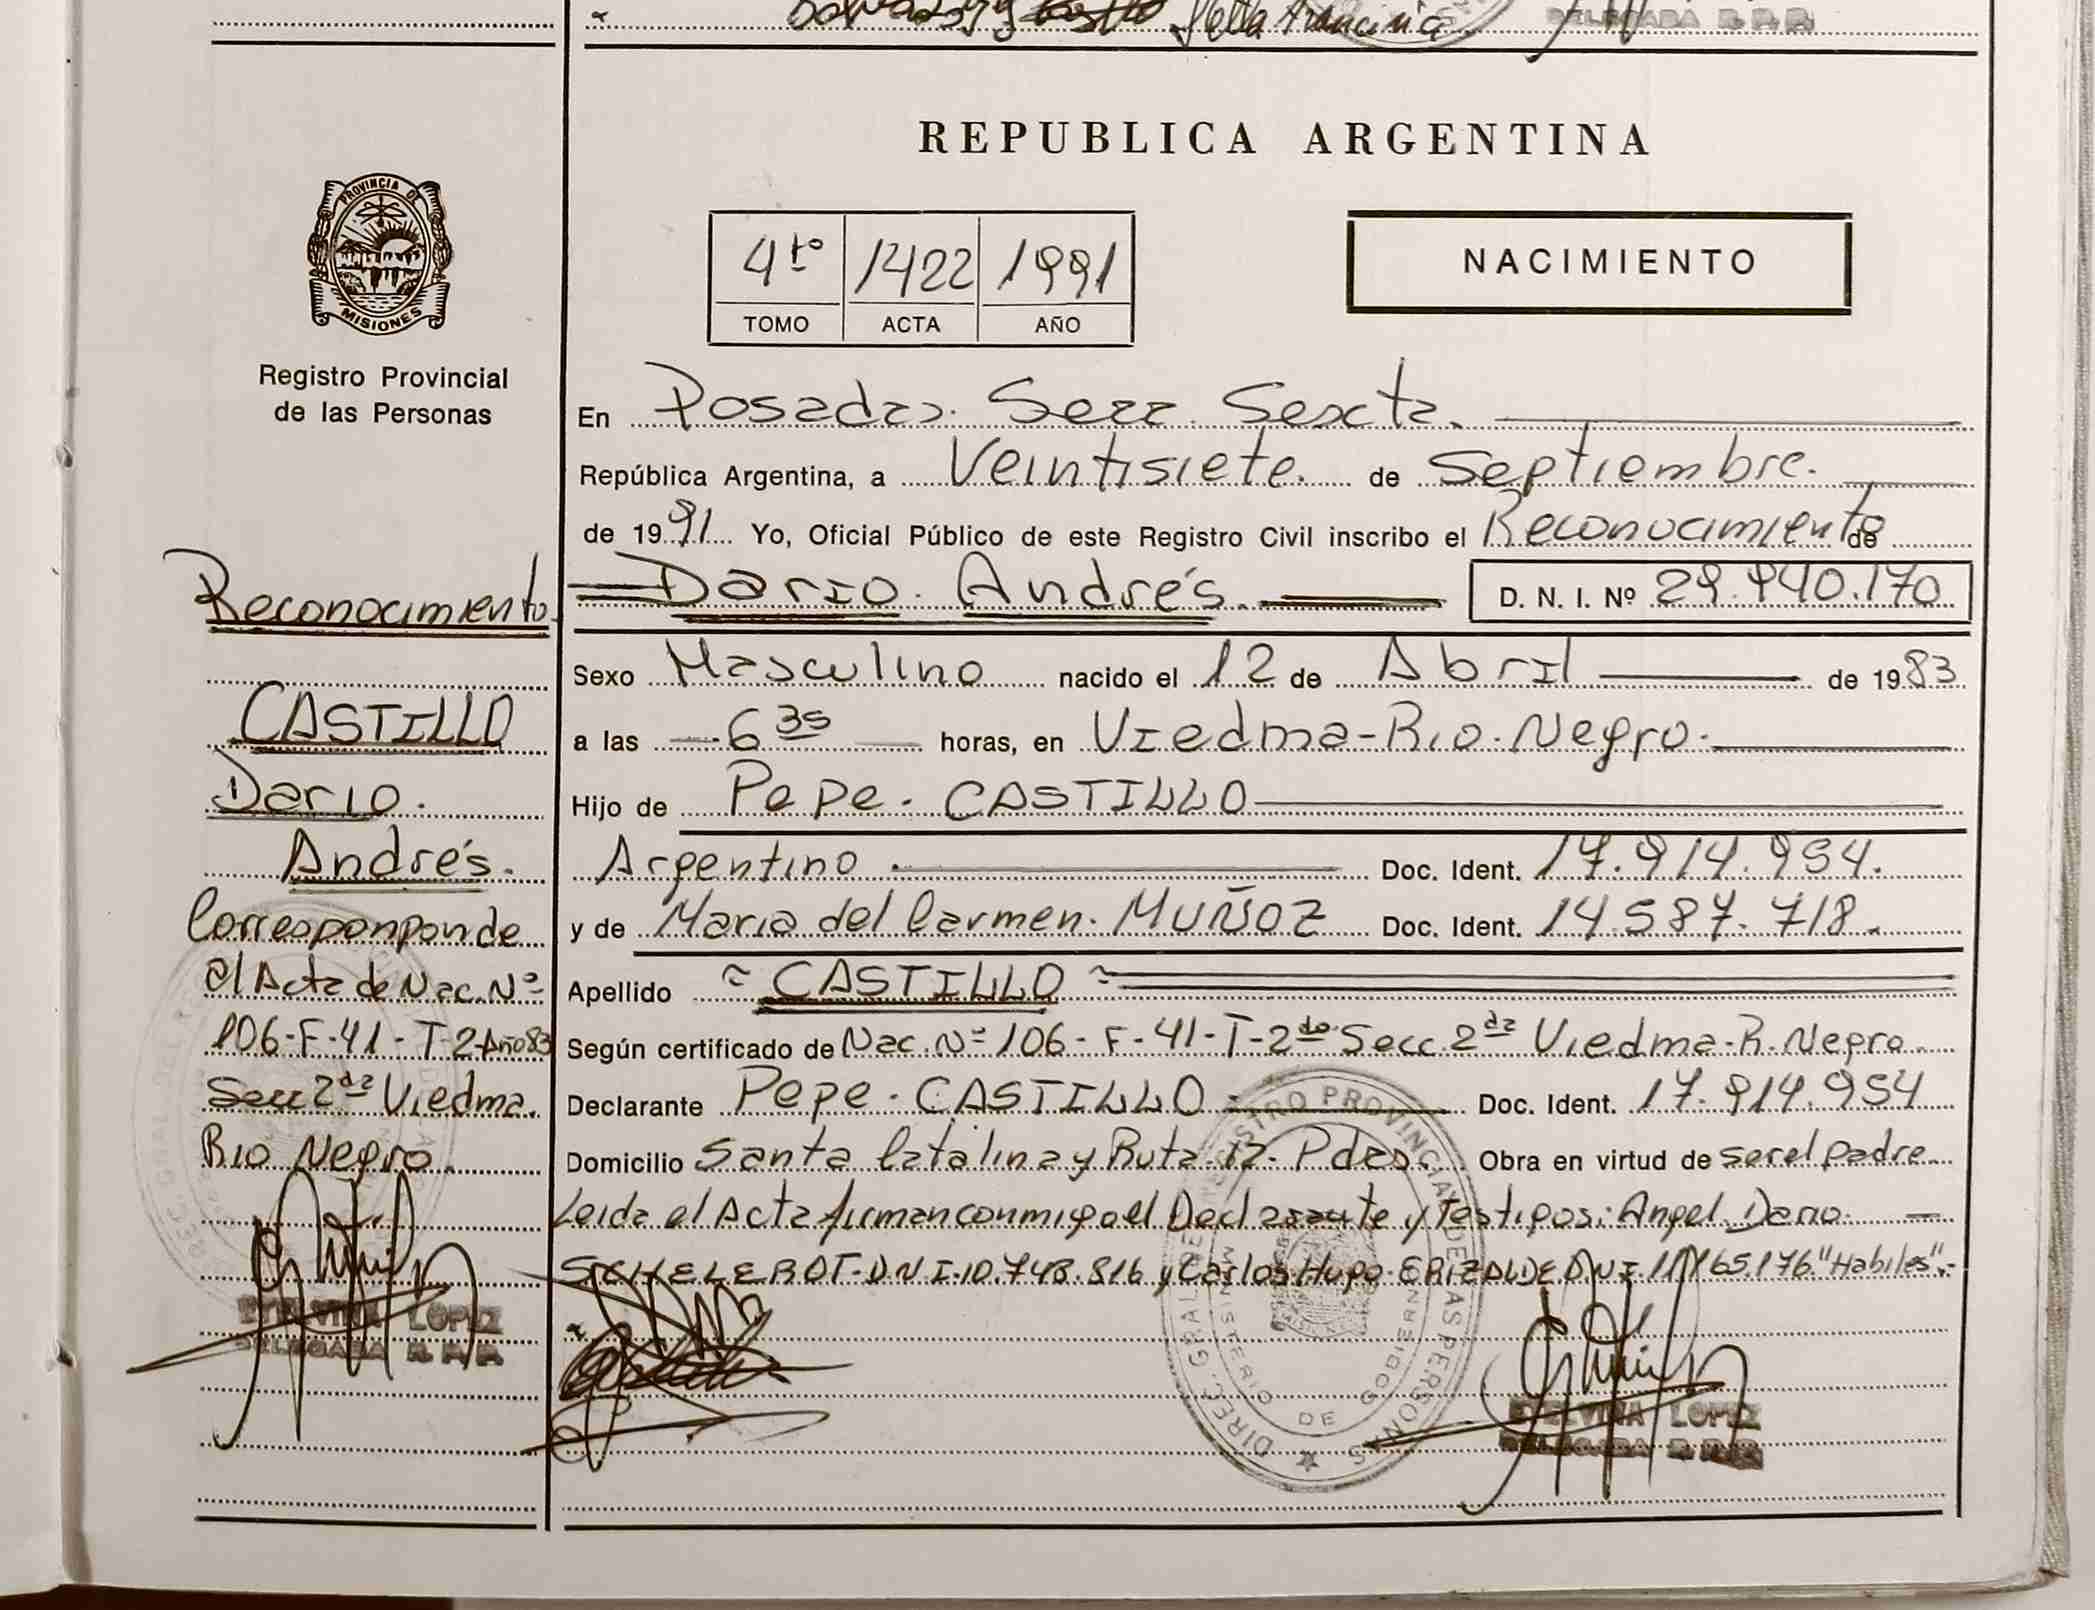 Stella Francinia
DELEGADA R. P. P.
REPUBLICA ARGENTINA
PROVINCIA DE
MISIONES
Registro Provincial
de las Personas
4to 1422 1991
TOMO ACTA AÑO
NACIMIENTO
En Posadas. Secc. Sexta.
República Argentina, a Veintisiete. de Septiembre.
de 1991 Yo, Oficial Público de este Registro Civil inscribo el Reconocimiento de
Dario. Andrés. D. N. I. Nº 29.940.170
Sexo Masculino nacido el 12 de Abril de 1983
a las 6 35 horas, en Viedma-Rio.Negro.
Hijo de Pepe. CASTILLO
Argentino. Doc. Ident. 17.914.954.
y de Maria del Carmen. MUÑOZ Doc. Ident. 14.587.718.
Apellido CASTILLO
Según certificado de Nac. Nº 106-F-41-T-2do Secc. 2da Viedma-R.Negro.
Declarante Pepe. CASTILLO Doc. Ident. 17.914.954
Domicilio Santa Catalina y Ruta 12. Pdas. Obra en virtud de ser el padre
Leida el Acta firman conmigo el Declarante y Testigos: Angel Dario
SCHELEROT-DNI-10.748.816 y Carlos Hugo ERIZALDE DNI 165.176 "Habiles".-
Reconocimiento.
CASTILLO
Dario.
Andrés.
Corresponponde
al Acta de Nac. Nº
106-F-41-T-2-Año 83
Secc 2da Viedma.
Rio Negro.
ETELVINA LOPEZ
DELEGADA R. P. P.
DIREC. GRAL. REGISTRO PROVINCIAL DE LAS PERSONAS
MINISTERIO DE GOBIERNO
ETELVINA LOPEZ
DELEGADA R. P. P.